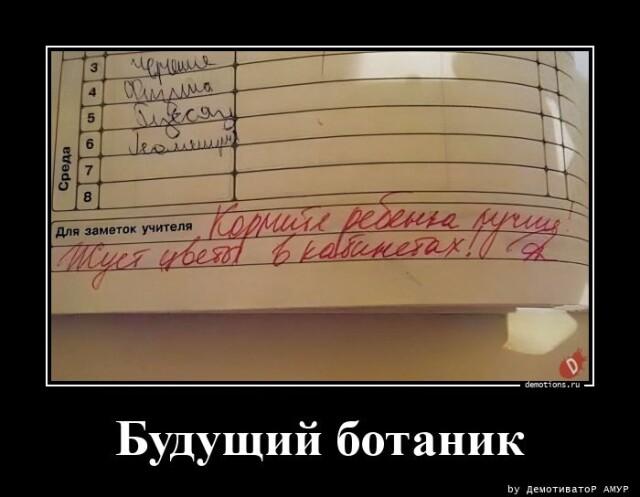 3 черчение
4 Физика
5
6 Геометрия
7
8
Среда
Для заметок учителя Кормите ребенка лучше!
Жует цветы в кабинетах!
demotions.ru
Будущий ботаник
by ДемотиватоР АМУР